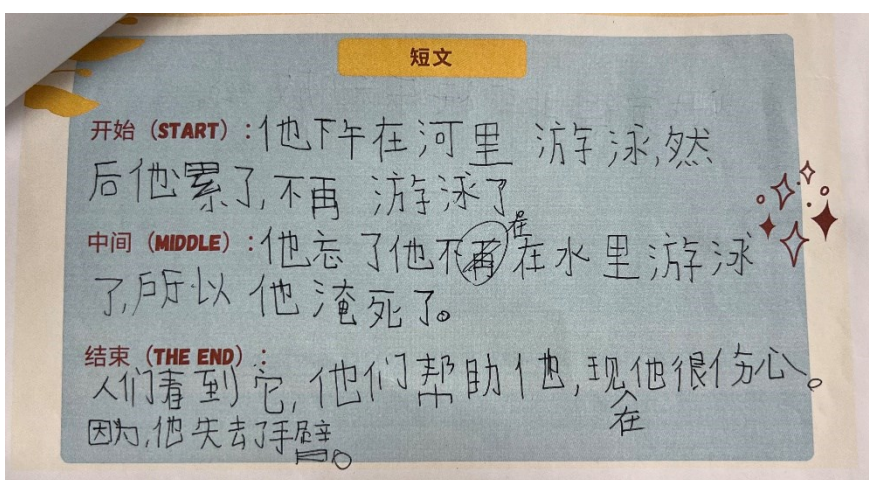 短文
开始（START）：他下午在河里游泳,然
后他累了,不再游泳了
中间（MIDDLE）：他忘了他不再在水里游泳
了,所以他淹死了。
结束（THE END）：
人们看到它,他们帮助他,现在他很伤心。
因为,他失去了手臂。